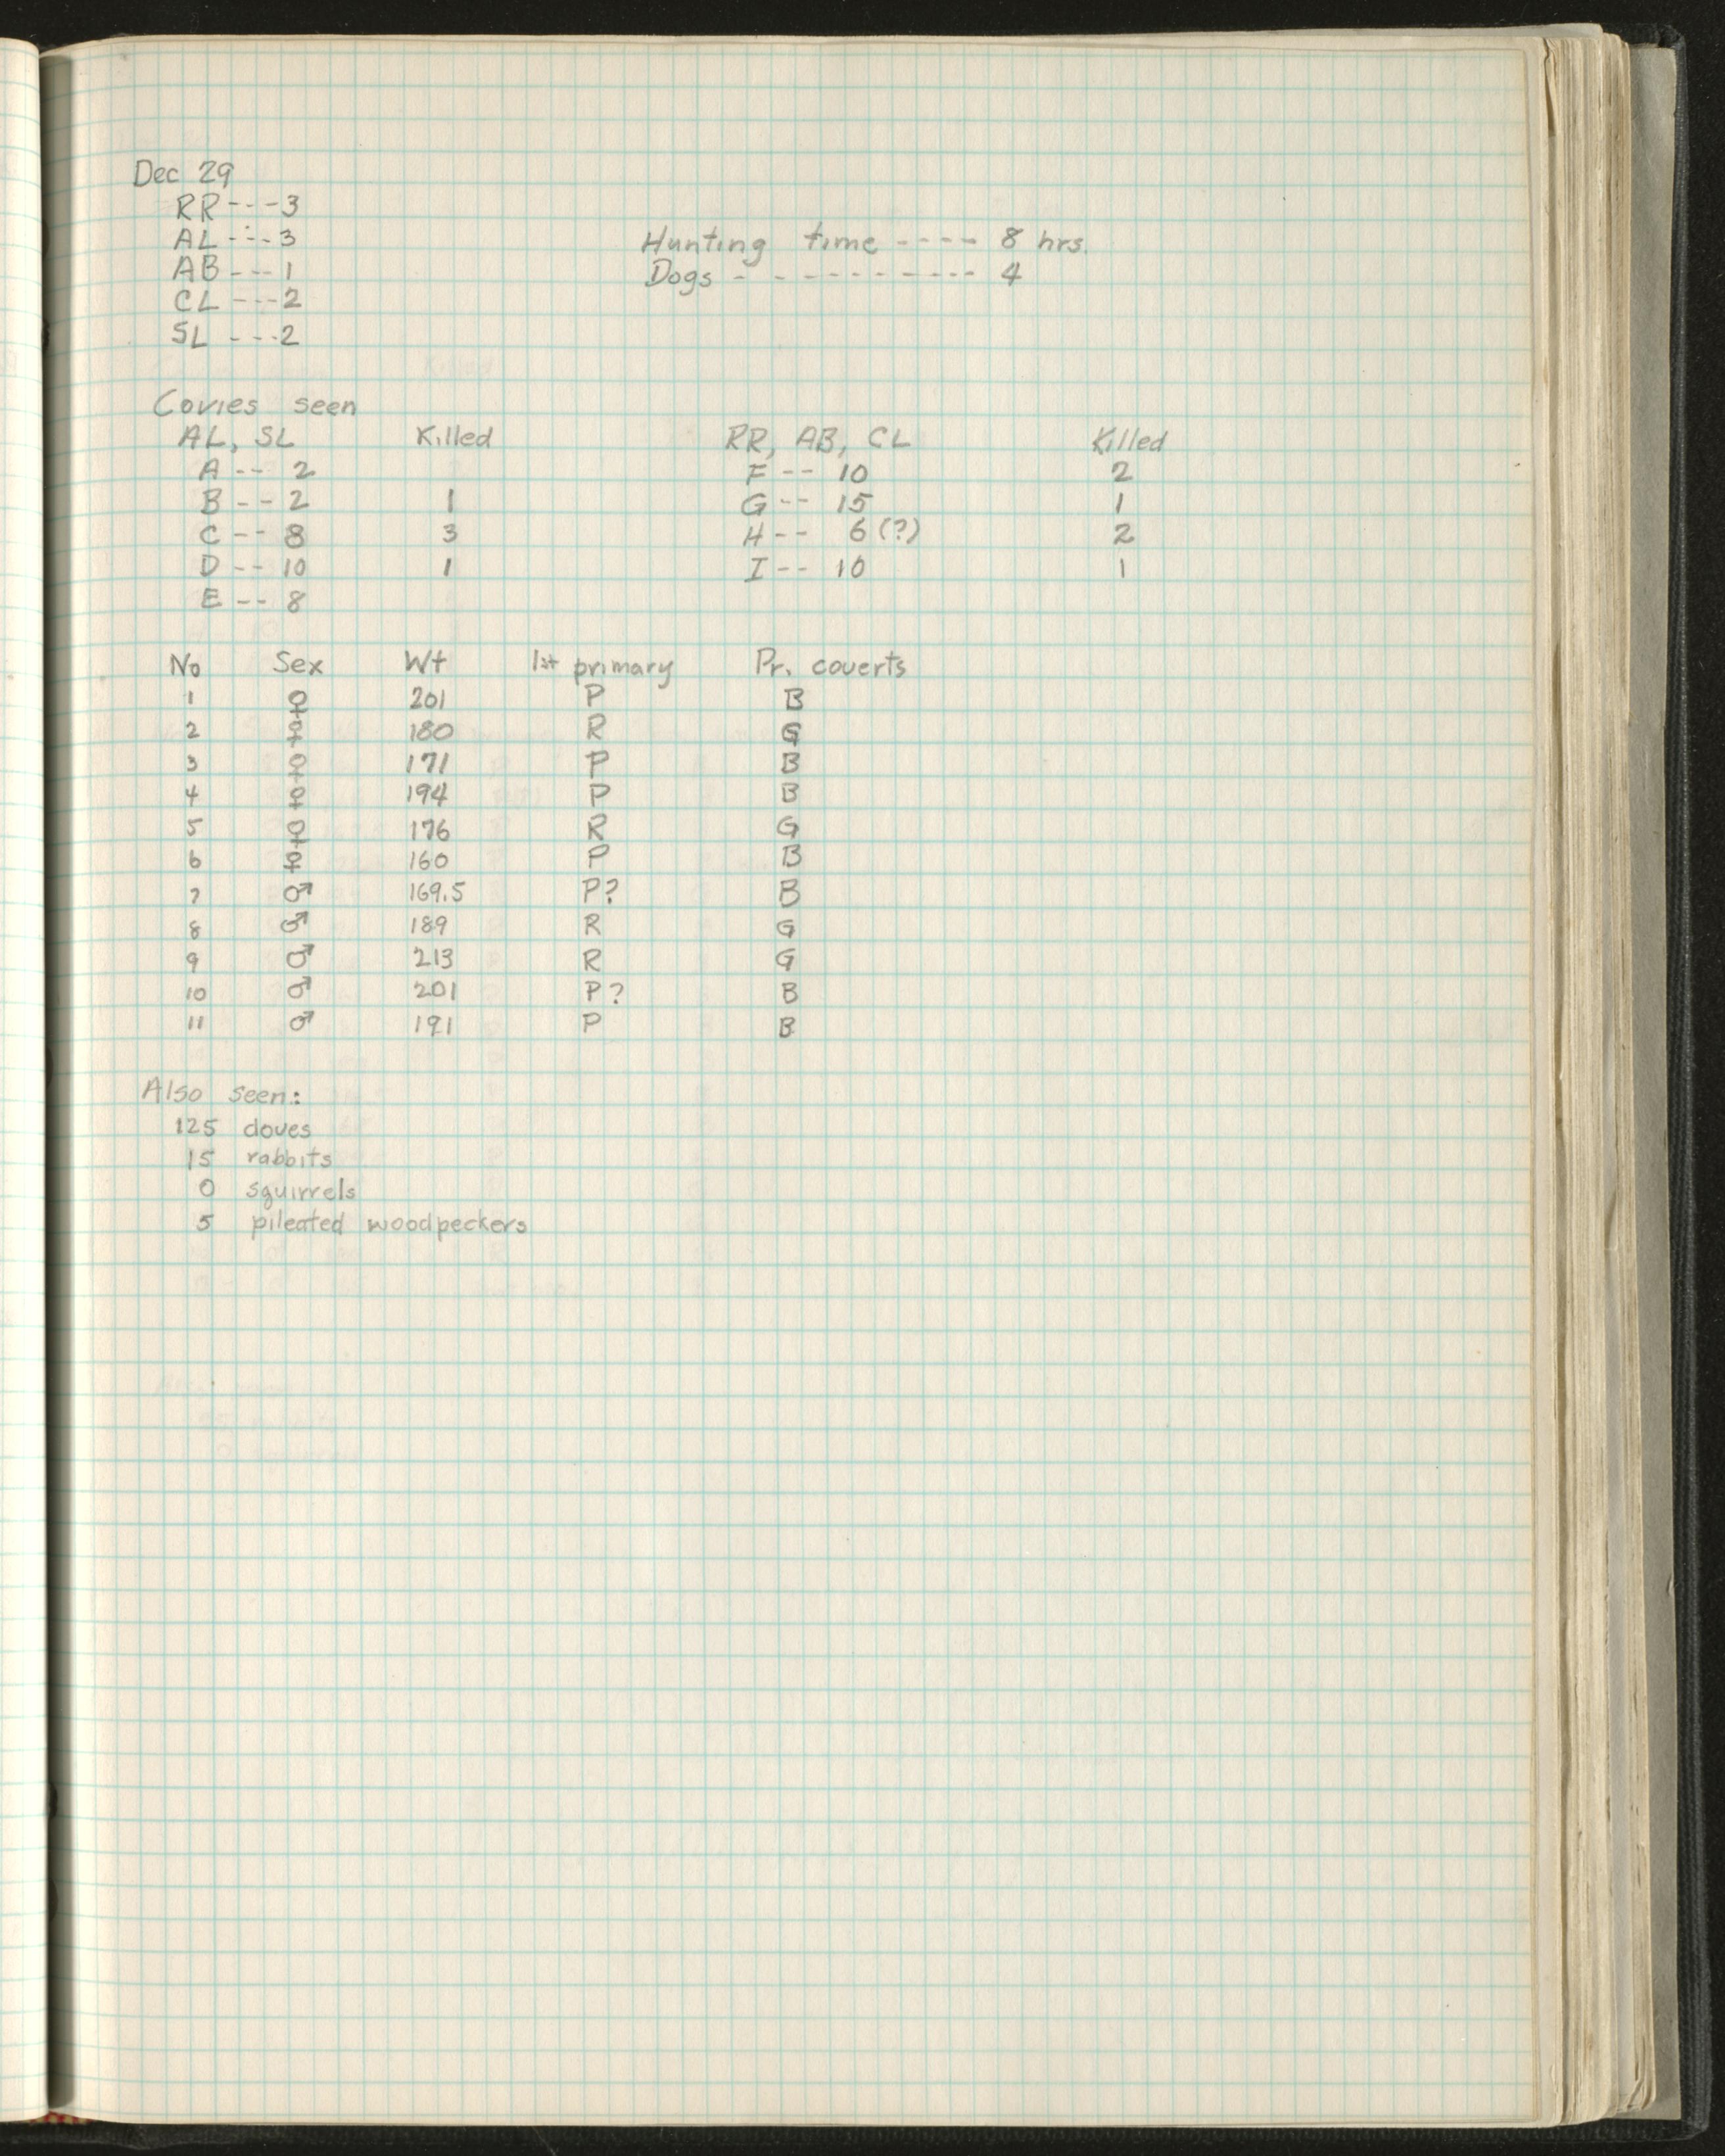 Dec 29
RR---3
AL---3
AB---1
CL---2
SL---2
Hunting time ---- 8 hrs.
Dogs - - --------- 4
Covies seen
AL, SL Killed RR, AB, CL Killed
A -- 2 F -- 10 2
B -- 2 1 G -- 15 1
C -- 8 3 H -- 6 (?) 2
D -- 10 1 I -- 10 1
E -- 8
No Sex Wt 1st primary Pr. coverts
1 ♀ 201 P B
2 ♀ 180 R G
3 ♀ 171 P B
4 ♀ 194 P B
5 ♀ 176 R G
6 ♀ 160 P B
7 ♂ 169.5 P? B
8 ♂ 189 R G
9 ♂ 213 R G
10 ♂ 201 P? B
11 ♂ 191 P B
Also seen:
125 doves
15 rabbits
0 squirrels
5 pileated woodpeckers